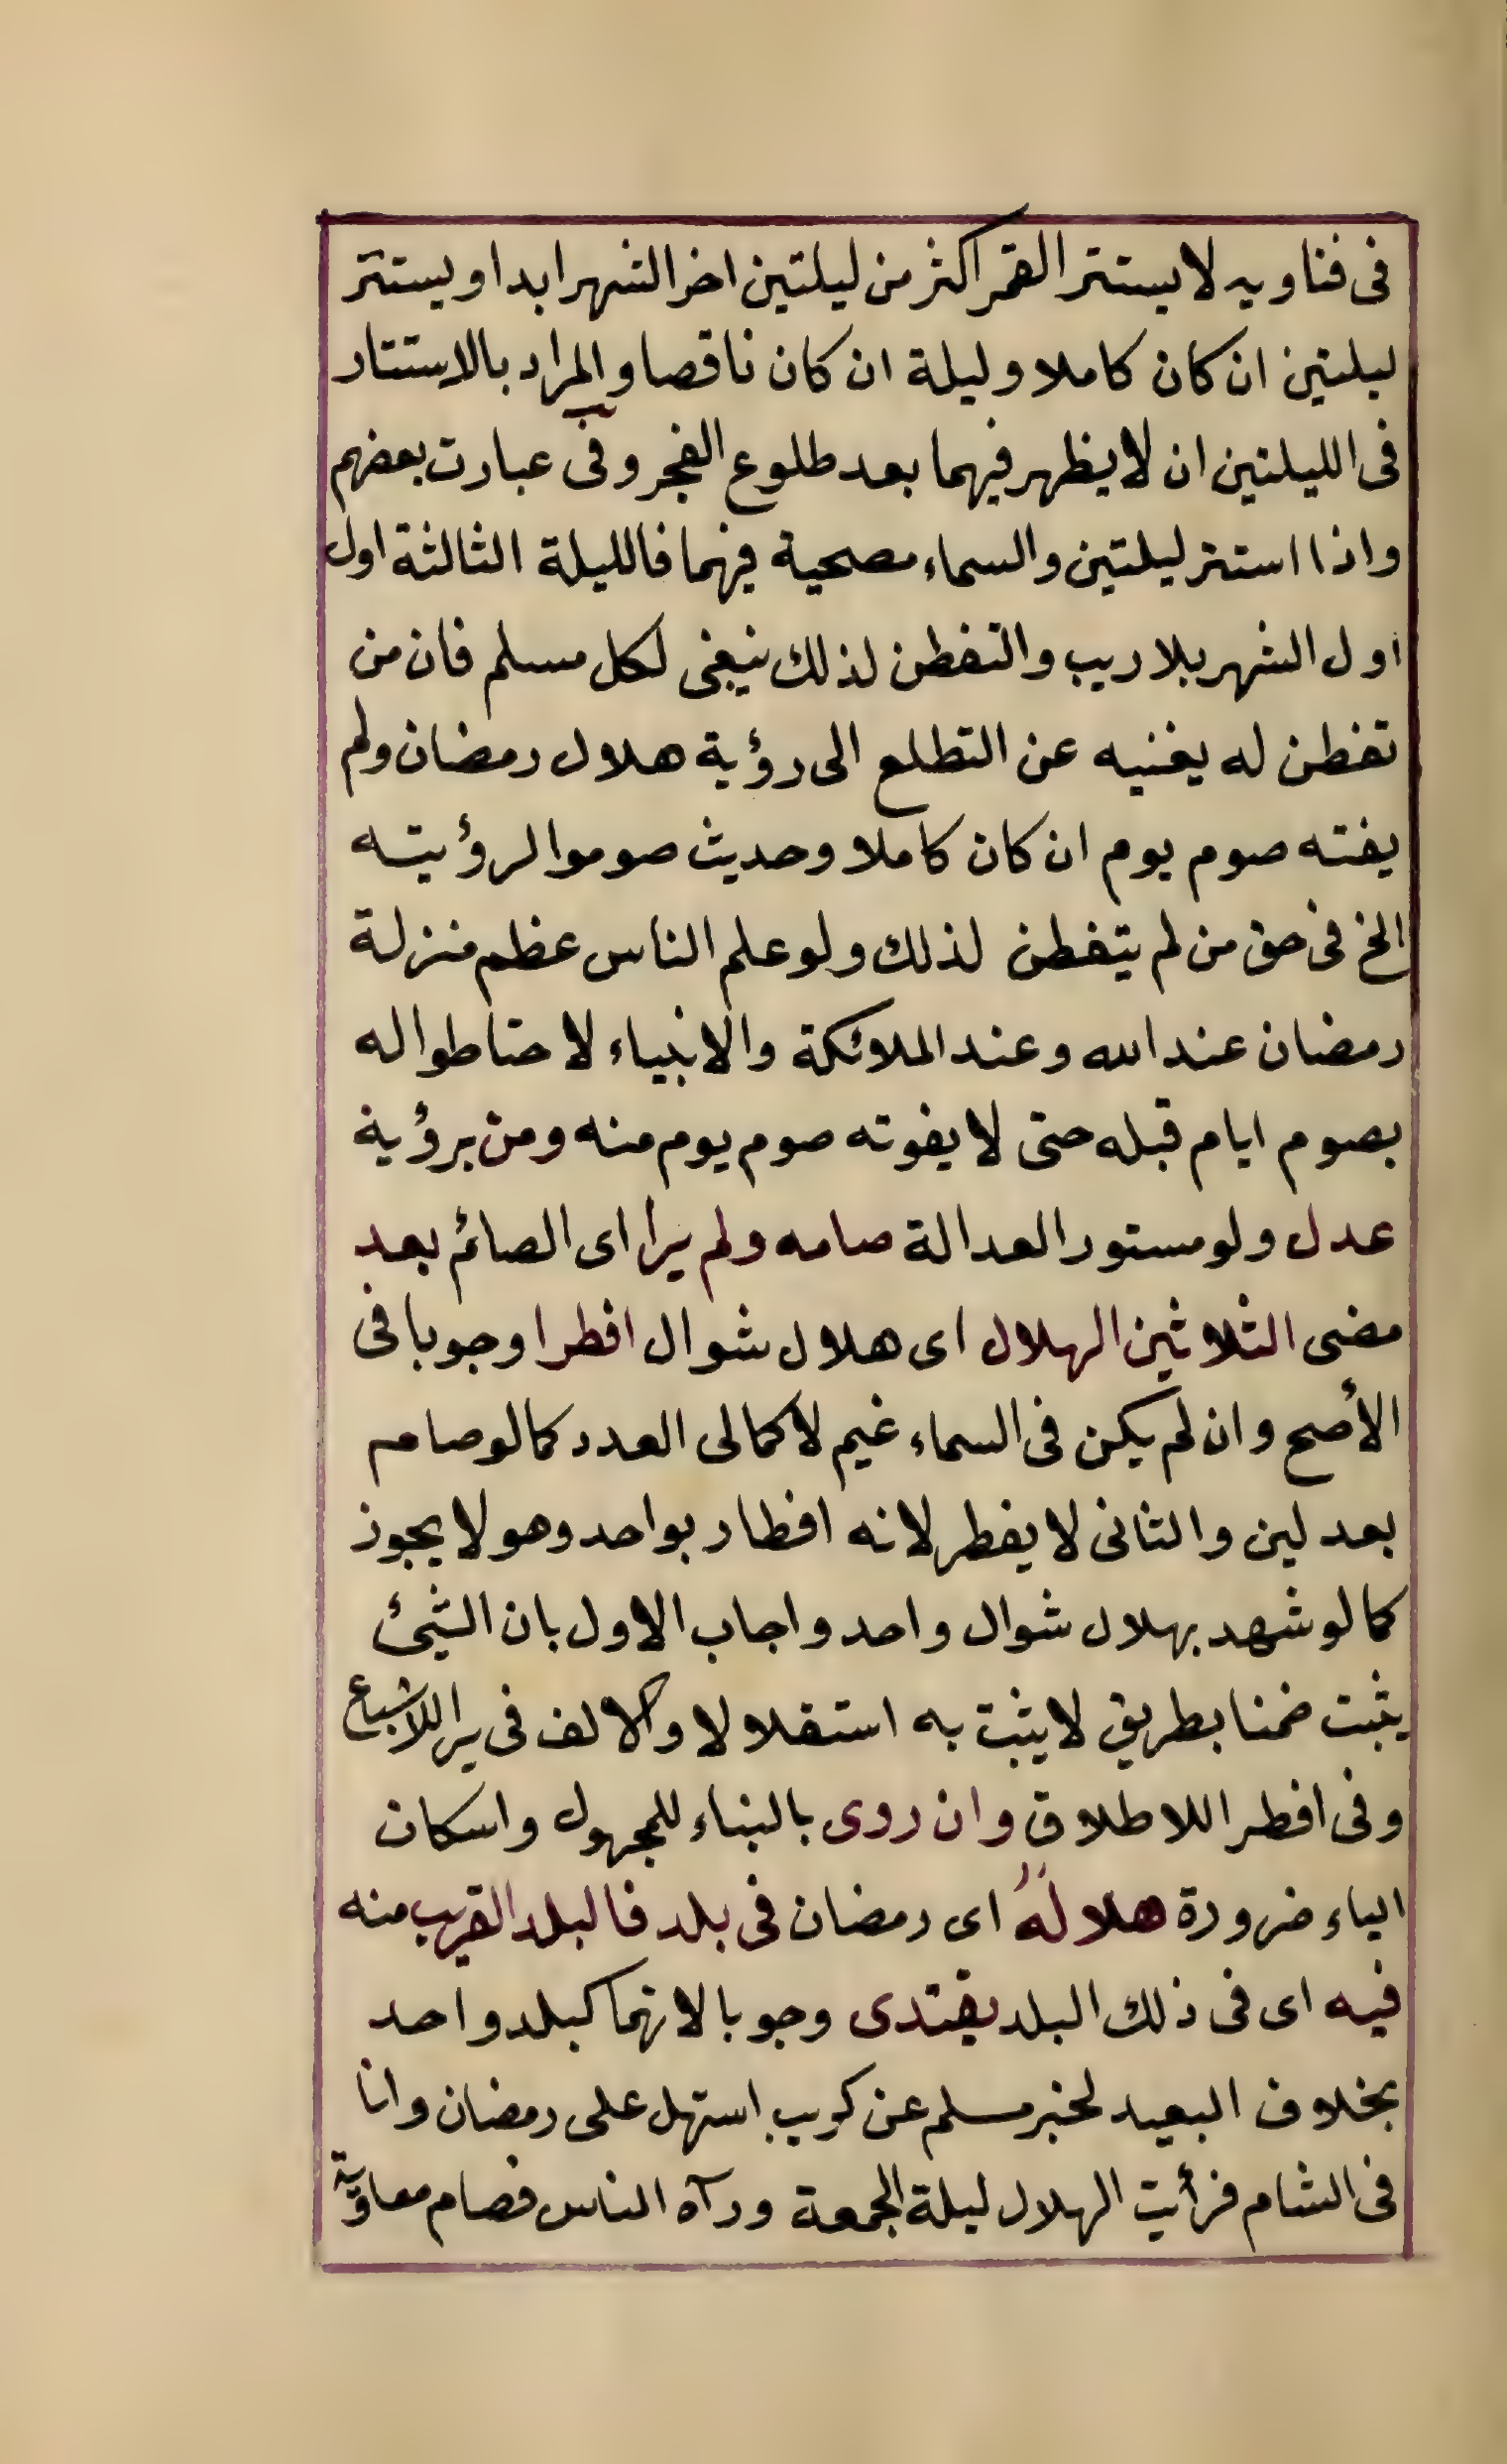 فى فتاويه لا يستتر القمر اكثر من ليلتين اخر الشهر ابدا ويستتر
ليلتين ان كان كاملا وليلة ان كان ناقصا والمراد بالاستتار
فى الليلتين ان لا يظهر فيهما بعد طلوع الفجر وفى عبارت بعضهم
واذا استتر ليلتين والسماء مصحية فيهما فالليلة الثالثة اول
اول الشهر بلا ريب والتفطن لذلك ينبغى لكل مسلم فان من
تفطن له يغنيه عن التطلع الى رؤية هلال رمضان ولم
يفته صوم يوم ان كان كاملا وحديث صوموا لرؤيته
الخ فى حق من لم يتفطن لذلك ولو علم الناس عظم منزلة
رمضان عند الله وعند الملائكة والانبياء لاحتاطوا له
بصوم ايام قبله حتى لا يفوته صوم يوم منه ومن برؤية
عدل ولو مستور العدالة صامه ولم يرا اى الصائم بعد
مضى الثلاثين الهلال اى هلال شوال افطرا وجوبا فى
الأصح وان لم يكن فى السماء غيم لاكمالى العدد كما لو صامه
بعدلين والثانى لا يفطر لانه افطار بواحد وهو لا يجوز
كما لو شهد بهلال شوال واحد واجاب الاول بان الشيئ
يثبت ضمنا بطريق لا يثبت به استقلالا والالف فى يرا للاشباع
وفى افطرا للاطلاق وان روى بالبناء للمجهول واسكان
الياء ضرورة هلالُهُ اى رمضان فى بلد فالبلد القريب منه
فيه اى فى ذلك البلد يقتدى وجوبا لانهما كبلد واحد
بخلاف البعيد لخبر مسلم عن كريب استهل على رمضان وانا
فى الشام فرأيت الهلال ليلة الجمعة ورآه الناس فصام معاوية